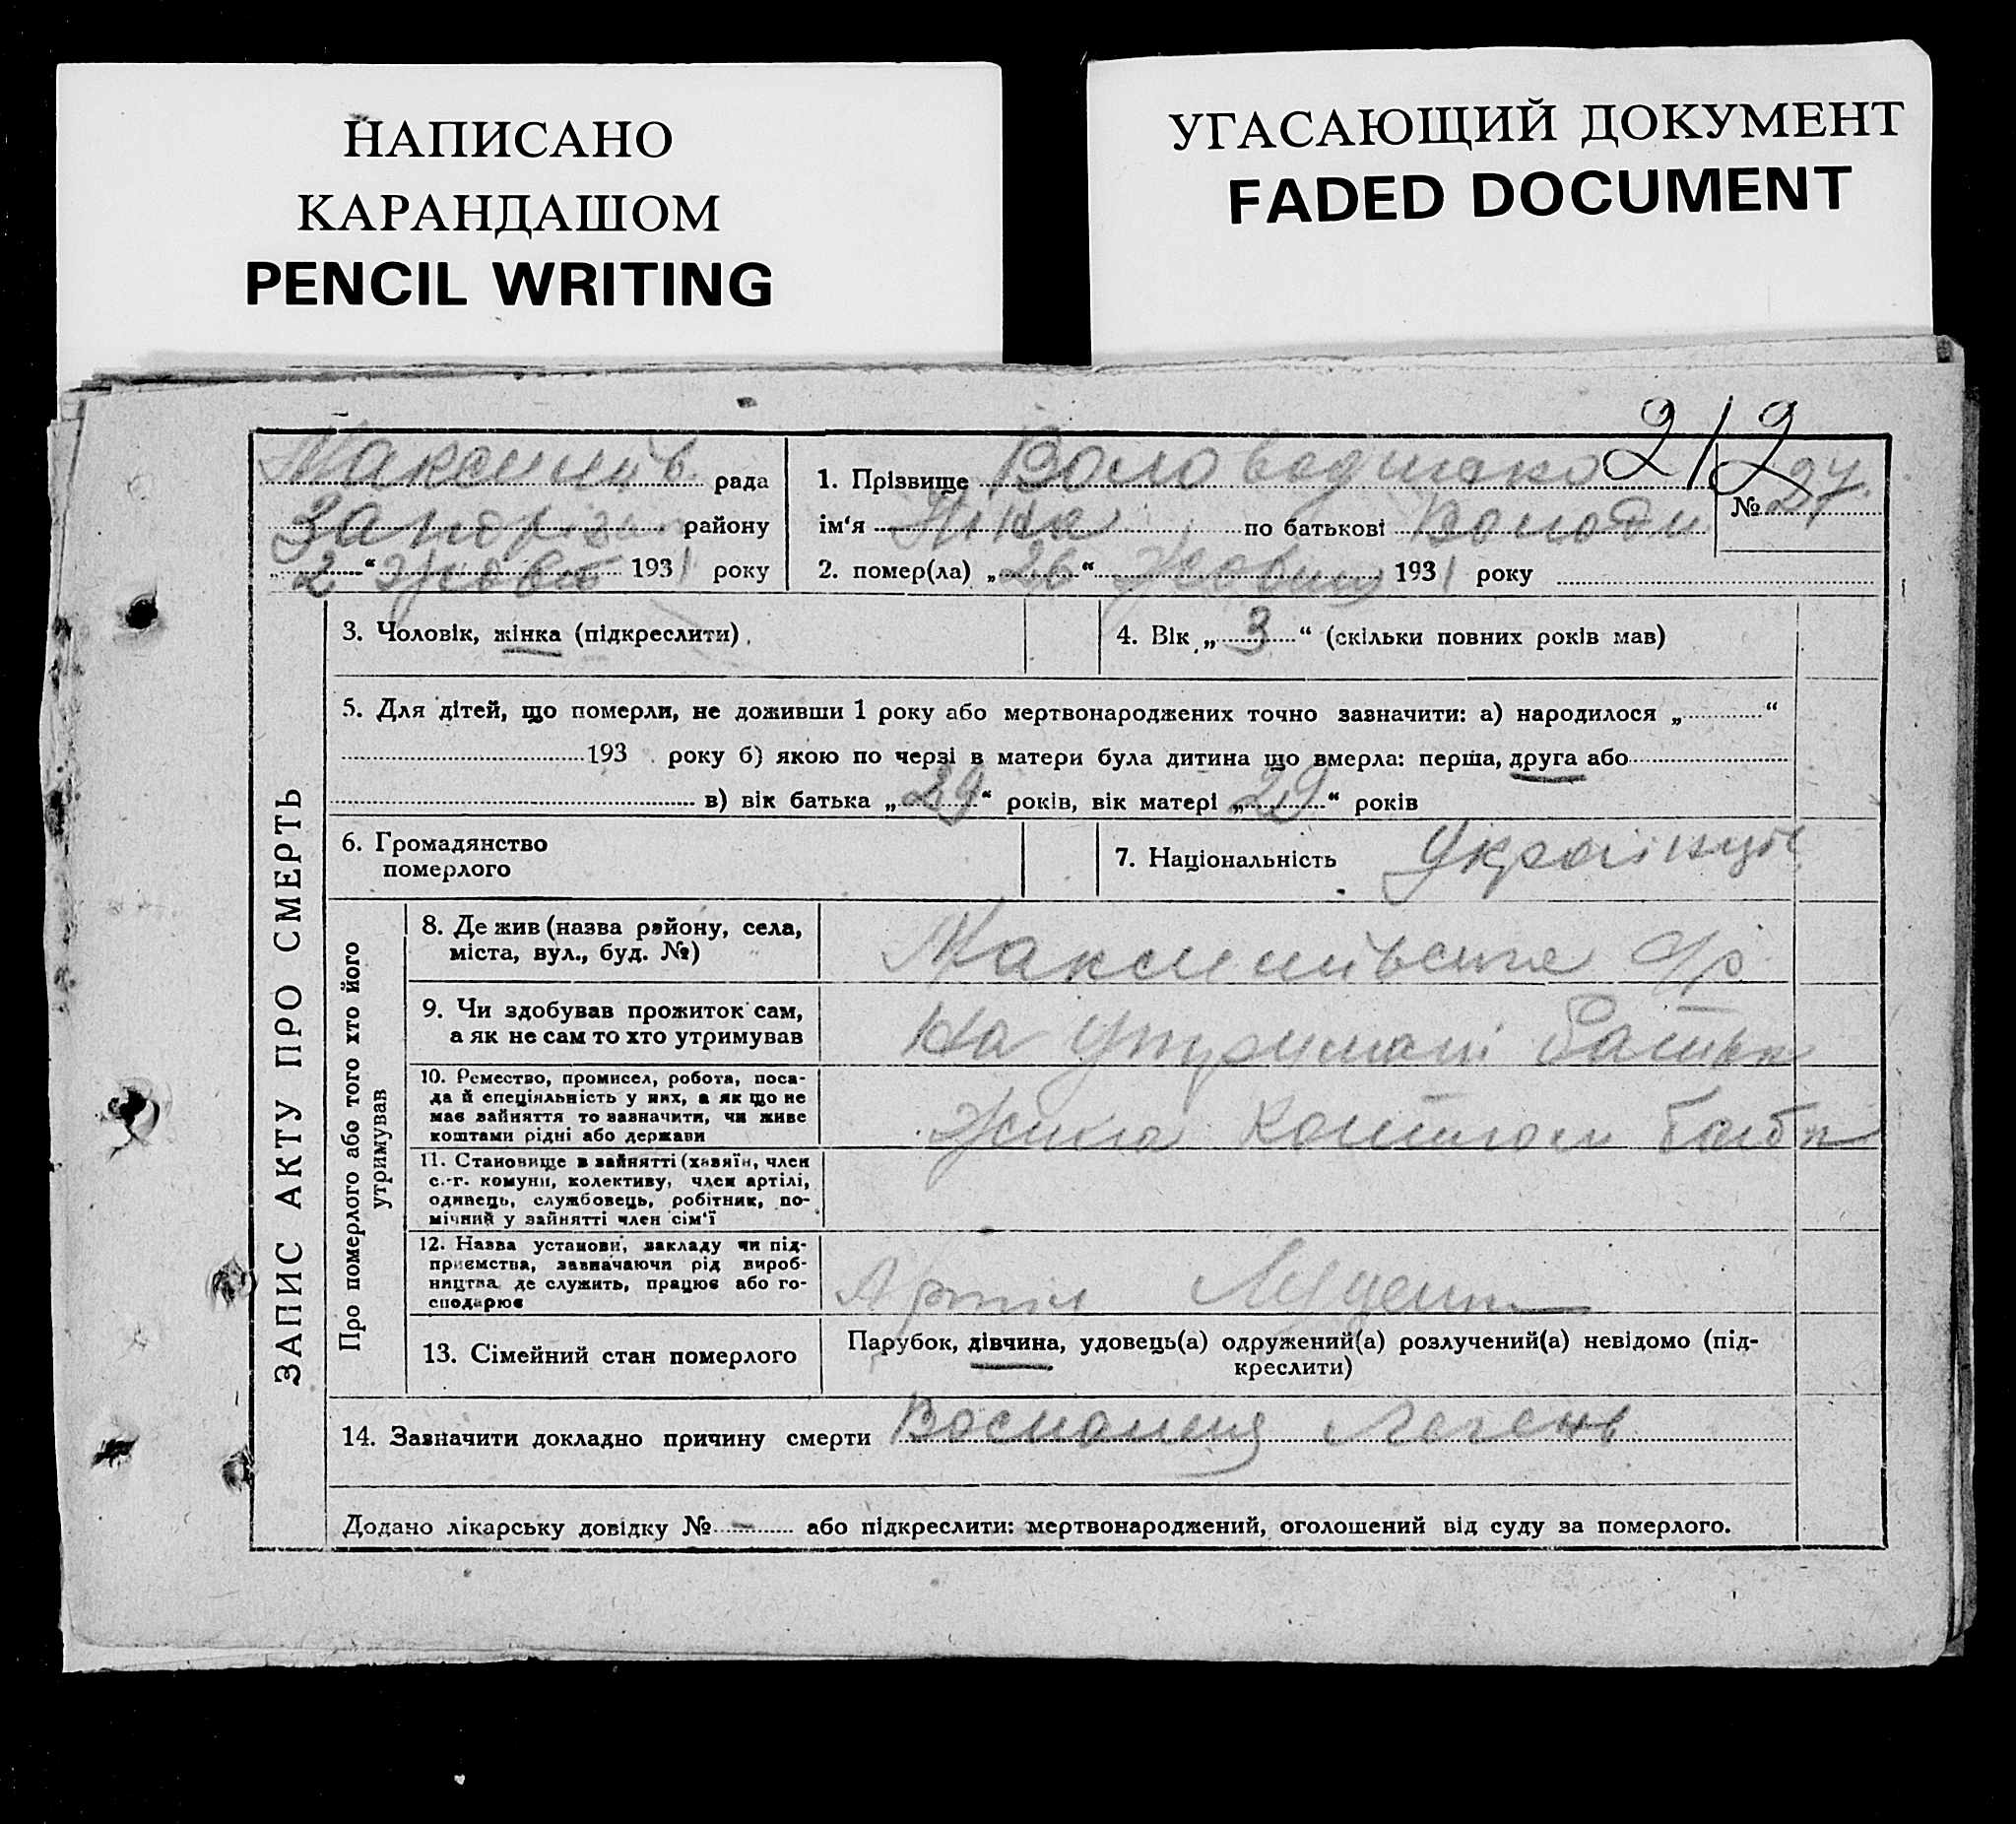 НАПИСАНО
КАРАНДАШОМ
PENCIL WRITING
УГАСАЮЩИЙ ДОКУМЕНТ
FADED DOCUMENT
212
ЗАПИС АКТУ ПРО СМЕРТЬ
Максимів рада
Запоріз району
„2“ Жовт 1931 року
1. Прізвище
№ 27.
ім'я по батькові Володи
2. помер(ла) „26“ 1931 року
3. Чоловік, жінка (підкреслити).
4. Вік „3“ (скільки повних років мав)
5. Для дітей, що померли, не доживши 1 року або мертвонароджених точно зазначити: а) народилося „ “
193 року б) якою по черзі в матери була дитина що вмерла: перша, друга або
в) вік батька „29“ років, вік матері „29“ років
6. Громадянство
померлого
7. Національність Українців
Про померлого або того хто його
утримував
8. Де жив (назва району, села,
міста, вул., буд. №)
с/р.
9. Чи здобував прожиток сам,
а як не сам то хто утримував
На утримані батька
10. Ремество, промисел, робота, поса-
да й спеціяльність у них, а як що не
має зайняття то зазначити, чи живе
коштами рідні або держави
Жила коштом
11. Становище в зайнятті (хазяїн, член
с.-г. комуни, колективу, член артілі,
одинець, службовець, робітник, по-
мічний у зайнятті член сім'ї
12. Назва установи, закладу чи під-
приємства, зазначаючи рід вироб-
ництва де служить, працює або го-
сподарює
Артіл
13. Сімейний стан померлого
Парубок, дівчина, удовець(а) одружений(а) розлучений(а) невідомо (під-
креслити)
14. Зазначити докладно причину смерти Воспаления Легень
Додано лікарську довідку № - або підкреслити: мертвонароджений, оголошений від суду за померлого.